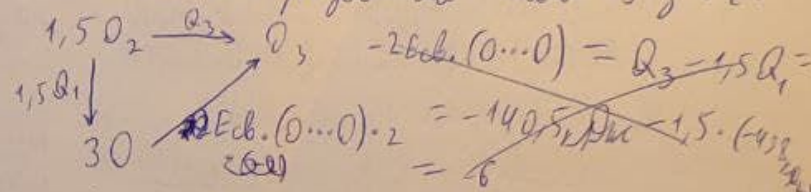 1,5 O₂ —Q₃→ O₃ -2Eсв.(O···O) = Q₃ - 1,5Q₁ =
1,5Q₁ Eсв.(O···O)·2 = -140,5 - 1,5·(-49
3O = -6